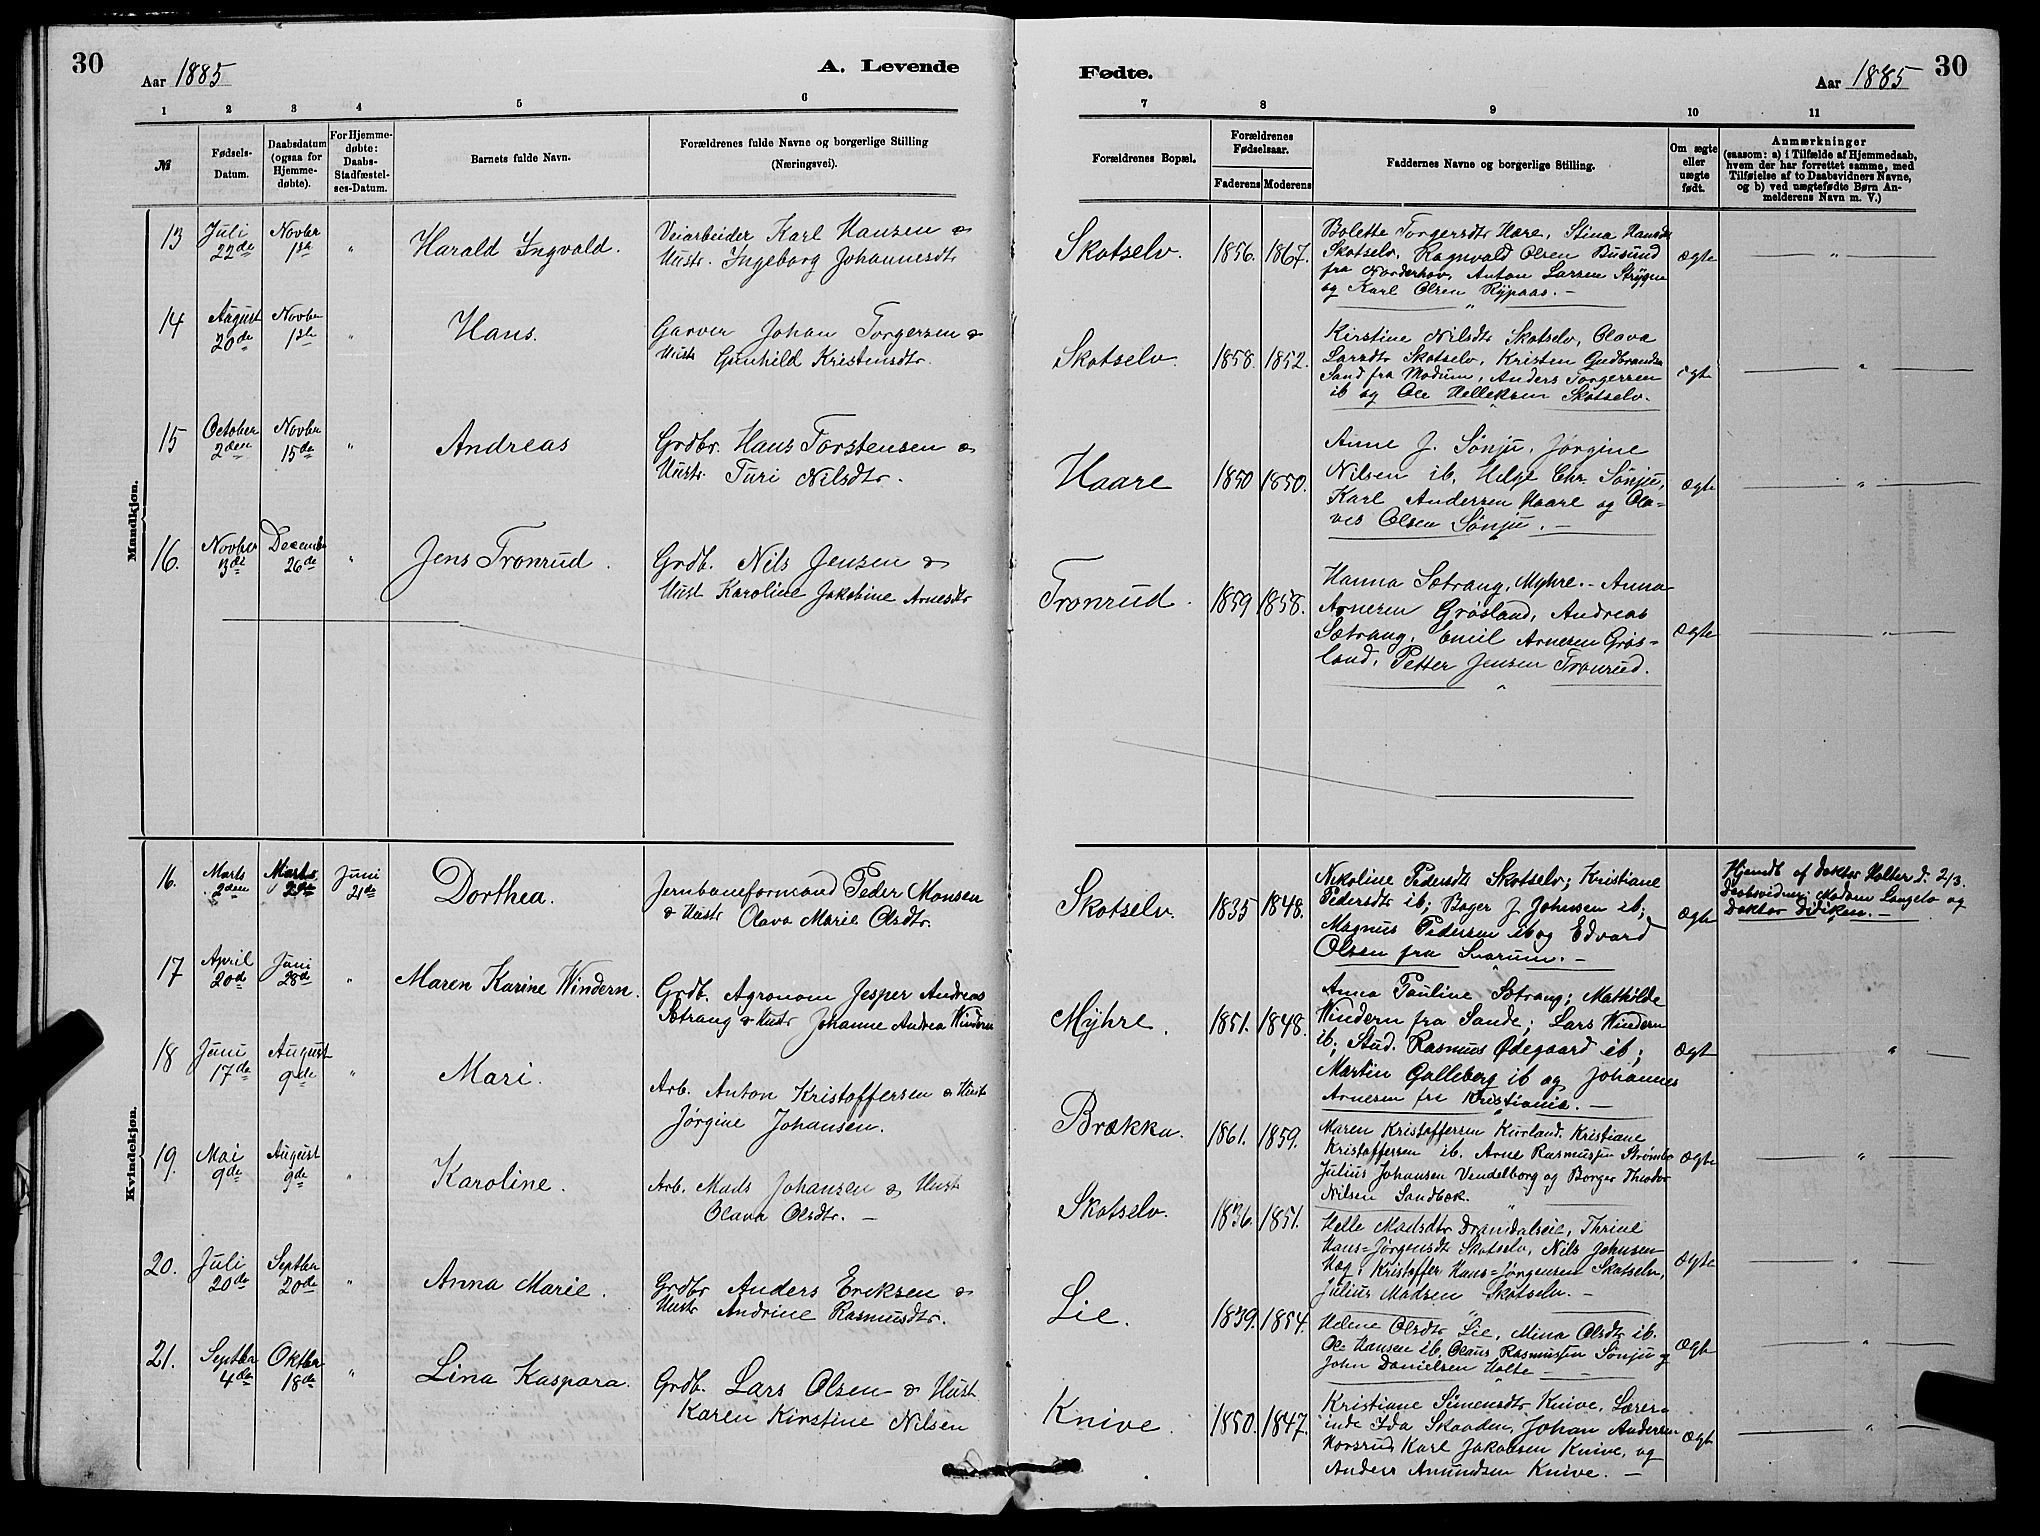 30
Aar 1885
A. Levende
1 2 3 4 5 6
№
Fødsels-
Datum.
Daabsdatum
(ogsaa for
Hjemme-
døbte).
For Hjemme-
døbte:
Daabs-
Stadfæstel-
ses-Datum.
Barnets fulde Navn.
Forældrenes fulde Navne og borgerlige Stilling
(Næringsvei).
Mandkjøn.
13 Juli Novbr Harald Ingvald. Veiarbeider Karl Hansen &
22de 1ste " Hustr. Ingeborg Johannesdtr
14 August Novbr Hans. Garver Johan Torgersen &
20de 1ste " Hustr Gunhild Kristensdtr.
15 October Novbr Andreas Grdbr. Hans Torstensen &
2den 15de " Hustr Turi Nilsdtr.
16. Novber Decembr Jens Tronrud. Grdb. Nils Jensen &
3de 26de " Hust Karoline Jakobine Arnesdtr
Kvindekjøn.
16. Marts Marts Juni Dorthea. Jernbaneformand Peder Monsen
2den 21de & Hustr Olava Marie Olsdtr.
17 April Juni Maren Karine Windern. Grdb. Agronom Jesper Andreas
20de 28de " Sætrang & Hustr Johanne Andrea Windern
18 Juni August Mari. Arb. Anton Kristoffersen & Hust
17de 9de " Jørgine Johansen.
19. Mai August Karoline. Arb. Mads Johansen & Hust
9de 9de " Olava Olsdtr. —
20. Juli Septbr Anna Marie. Grdbr Anders Eriksen &
20de 20de " Hustr Andrine Rasmusdtr.
21. Septbr Oktbr Lina Kaspara. Grdb. Lars Olsen & Hust
4de 18de " Karen Kirstine Nilsen
Fødte.
Aar 1885
30
7 8 9 10 11
Forældrenes Bopæl.
Forældrenes
Fødselsaar.
Faderens Moderens
Faddernes Navne og borgerlige Stilling.
Om ægte
eller
uægte
født.
Anmærkninger
(saasom: a) i Tilfælde af Hjemmedaab,
hvem der har forrettet samme, med
Tilføielse af to Daabsvidners Navne,
og b) ved uægtefødte Børn An-
melderens Navn m. V.)
Bolette Torgersdtr Hare, Stina Hansdtr
Skotselv. 1856. 1867. Skotselv, Ragnvald Olsen Busund ægte "
fra Norderhov, Anton Larsen Strygen
og Karl Olsen Rypaas. —
Kirstine Nilsdtr Skotselv, Olava
Skotselv. 1858. 1852. Larsdtr Skotselv, Kristen Gudbrandsen ægte "
Sand fra Modum, Anders Torgersen
ib og Ole Helleksen Skotselv.
Anne J. Sønju, Jørgine
Haare 1850 1850. Nilsen ib, Helge Chr. Sønju, ægte "
Karl Andersen Haare og Ola-
ves Olsen Sønju. —
Hanna Sætrang, Myhre. — Anna
Tronrud. 1859 1858. Arnesen Grøsland, Andreas
Sætrang, Emil Arnesen Grøs- ægte "
land, Petter Jensen Tronrud.
Nikoline Pedersdtr Skotselv; Kristiane
Skotselv. 1835 1848. Pedersdtr ib; Bager J Johnsen ib; ægte
Magnus Pedersen ib og Edvard
Olsen fra Snarum. —
Hjemdt af doktor Holter d. 2/3.
Daabsvidner: Madam Langelo og
Doktor Didiken. —
Anna Pauline Sætrang; Mathilde
Myhre. 1851. 1848. Windern fra Sande; Lars Windern
ib; Stud. Rasmus Ødegaard ib; Ægt "
Martin Galleberg ib og Johannes
Arnesen fra Kristiania. —
Brækka. 1861. 1859. Maren Kristoffersen Kurland. Kristiane
Kristoffersen ib. Arne Rasmussen Strømbo Ægte "
Julius Johansen Vendelborg og Borger Theodor
Nilsen Sandbæk.
Skotselv. 1836. 1851. Helle Madsdtr Drøndalseie, Thrine
Hans=Jørgensdtr Skotselv, Nils Johnsen
Hog, Kristoffer Hans=Jørgensen Skotselv, Ægte "
Julius Madsen Skotselv. —
Lie. 1839. 1854. Helene Olsdtr Lie, Mina Olsdtr ib.
Ole Hansen ib, Olaus Rasmussen Sønju og Ægt "
John Danielsen Holte —
Knive. 1850. 1847. Kristiane Simensdtr Knive, Lærer-
inde Ida Skaaden, Johan Andersen Ægt "
Horsrud Karl Jakobsen Knive, og
Anders Amundsen Knive. —